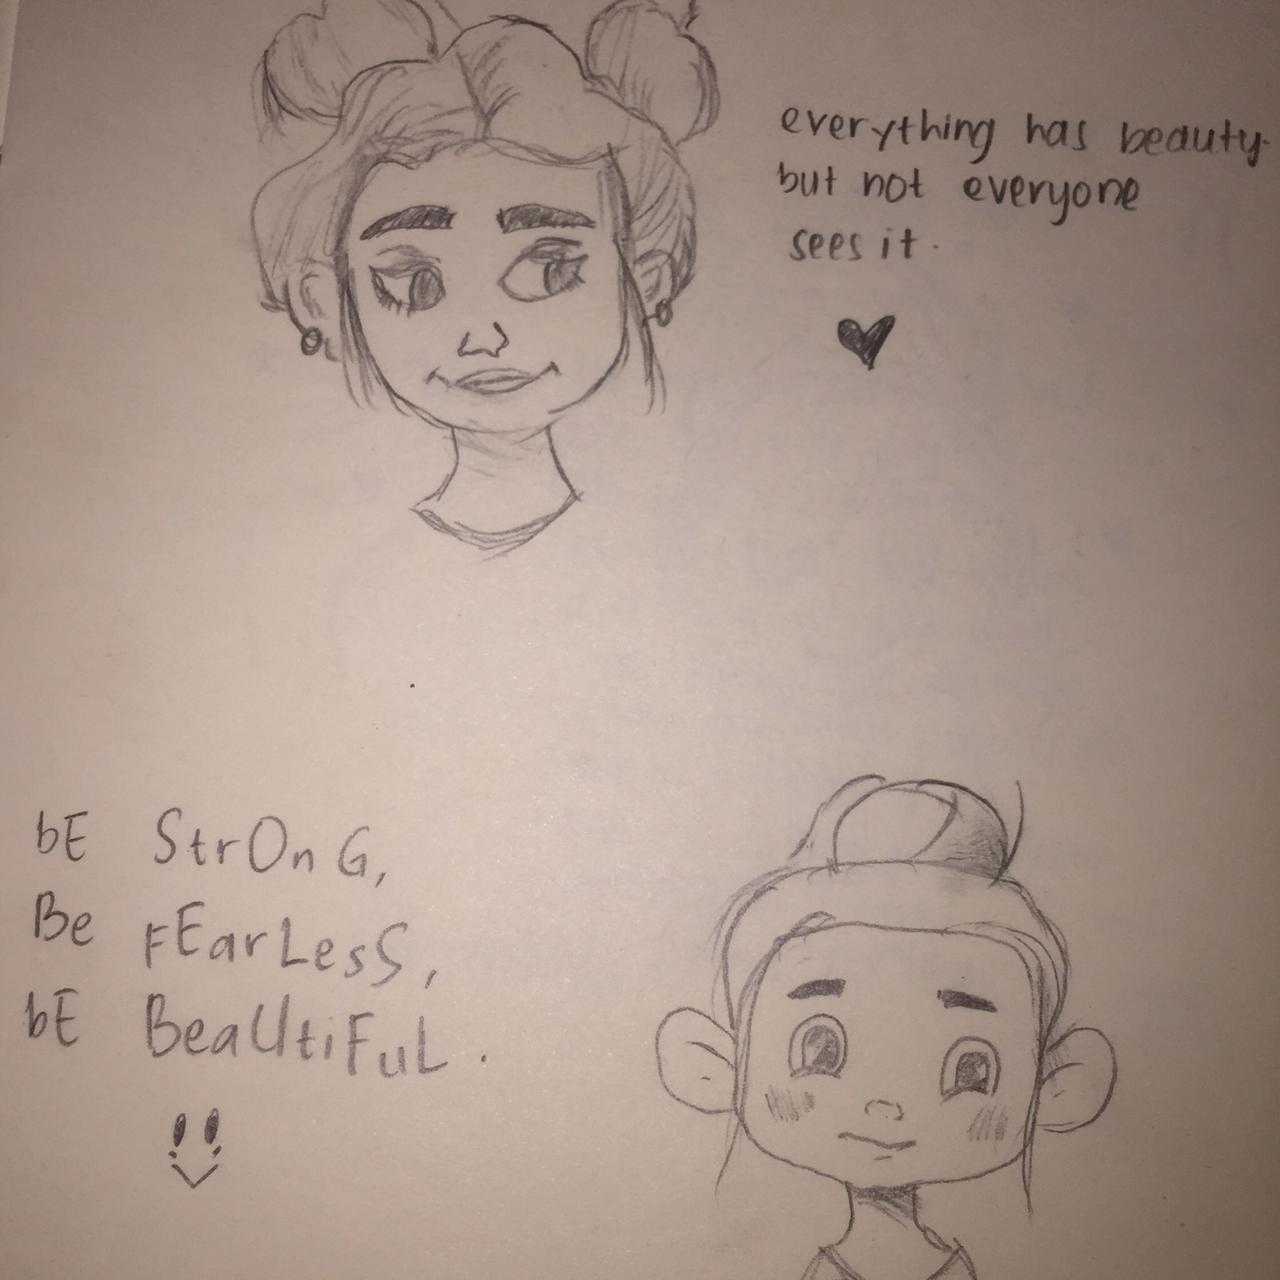 everything has beauty.
but not everyone
sees it.
bE StrOnG,
Be fEarLesS,
bE BeaUtiFuL.